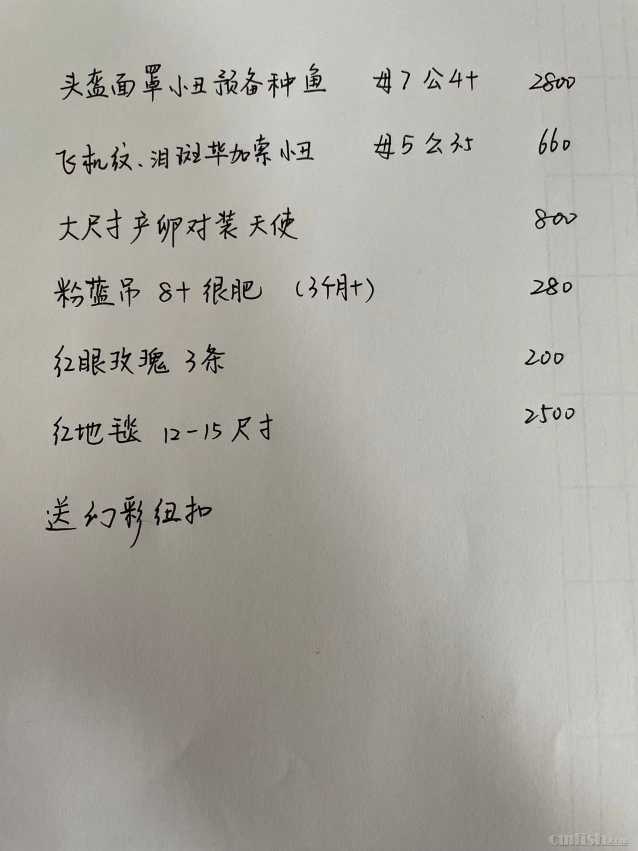 头盔面罩小丑预备种鱼 母7 公4+ 2800
飞机纹、泪斑毕加索小丑 母5 公3.5 660
大尺寸产卵对装天使 800
粉蓝吊 8+ 很肥 (3个月+) 280
红眼玫瑰 3条 200
红地毯 12-15尺寸 2500
送幻彩纽扣